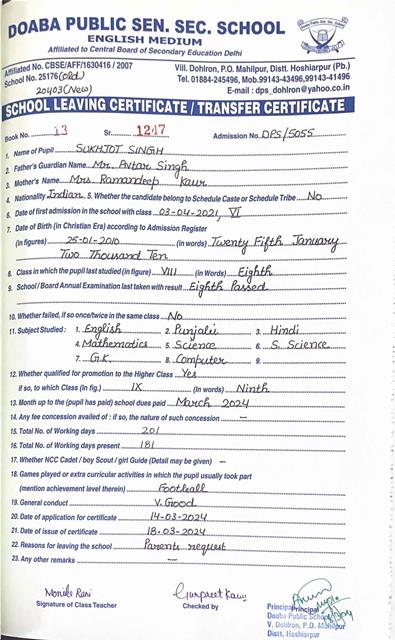 DOABA PUBLIC SEN. SEC. SCHOOL
ENGLISH MEDIUM
Affiliated to Central Board of Secondary Education Delhi
Affiliated No. CBSE/AFF/1630416 / 2007
Vill. Dohlron, P.O. Mahilpur, Distt. Hoshiarpur (Pb.)
School No. 25176 (old)
Tel. 01884-245496, Mob.99143-43496,99143-41496
20403 (New)
E-mail : dps_dohlron@yahoo.co.in
SCHOOL LEAVING CERTIFICATE / TRANSFER CERTIFICATE
Book No. 13 Sr. 1247 Admission No. DPS/5055
1. Name of Pupil SUKHJOT SINGH
2. Father's Guardian Name Mr. Avtar Singh
3. Mother's Name Mrs Ramandeep Kaur
4. Nationality Indian 5. Whether the candidate belong to Schedule Caste or Schedule Tribe No
6. Date of first admission in the school with class 03-04-2021, VI
7. Date of Birth (in Christian Era) according to Admission Register
(in figures) 25-01-2010 (in words) Twenty Fifth January
Two Thousand Ten
8. Class in which the pupil last studied (in figure) VIII (in Words) Eighth
9. School / Board Annual Examination last taken with result Eighth Passed
10. Whether failed, if so once/twice in the same class No
11. Subject Studied : 1. English 2. Punjabi 3. Hindi
4. Mathematics 5. Science 6. S. Science
7. G.K. 8. Computer 9.
12. Whether qualified for promotion to the Higher Class Yes
if so, to which Class (In fig.) IX (In words) Ninth
13. Month up to the (pupil has paid) school dues paid March 2024
14. Any fee concession availed of : if so, the nature of such concession –
15. Total No. of Working days 201
16. Total No. of Working days present 181
17. Whether NCC Cadet / boy Scout / girl Guide (Detail may be given) –
18. Games played or extra curricular activities in which the pupil usually took part
(mention achievement level therein) Football
19. General conduct V. Good
20. Date of application for certificate 14-03-2024
21. Date of issue of certificate 18-03-2024
22. Reasons for leaving the school Parents request
23. Any other remarks –
Gurpreet Kaur
Signature of Class Teacher Checked by Principal Principal
Doaba Public School
V. Dohlron, P.O. Mahilpur
Distt. Hoshiarpur